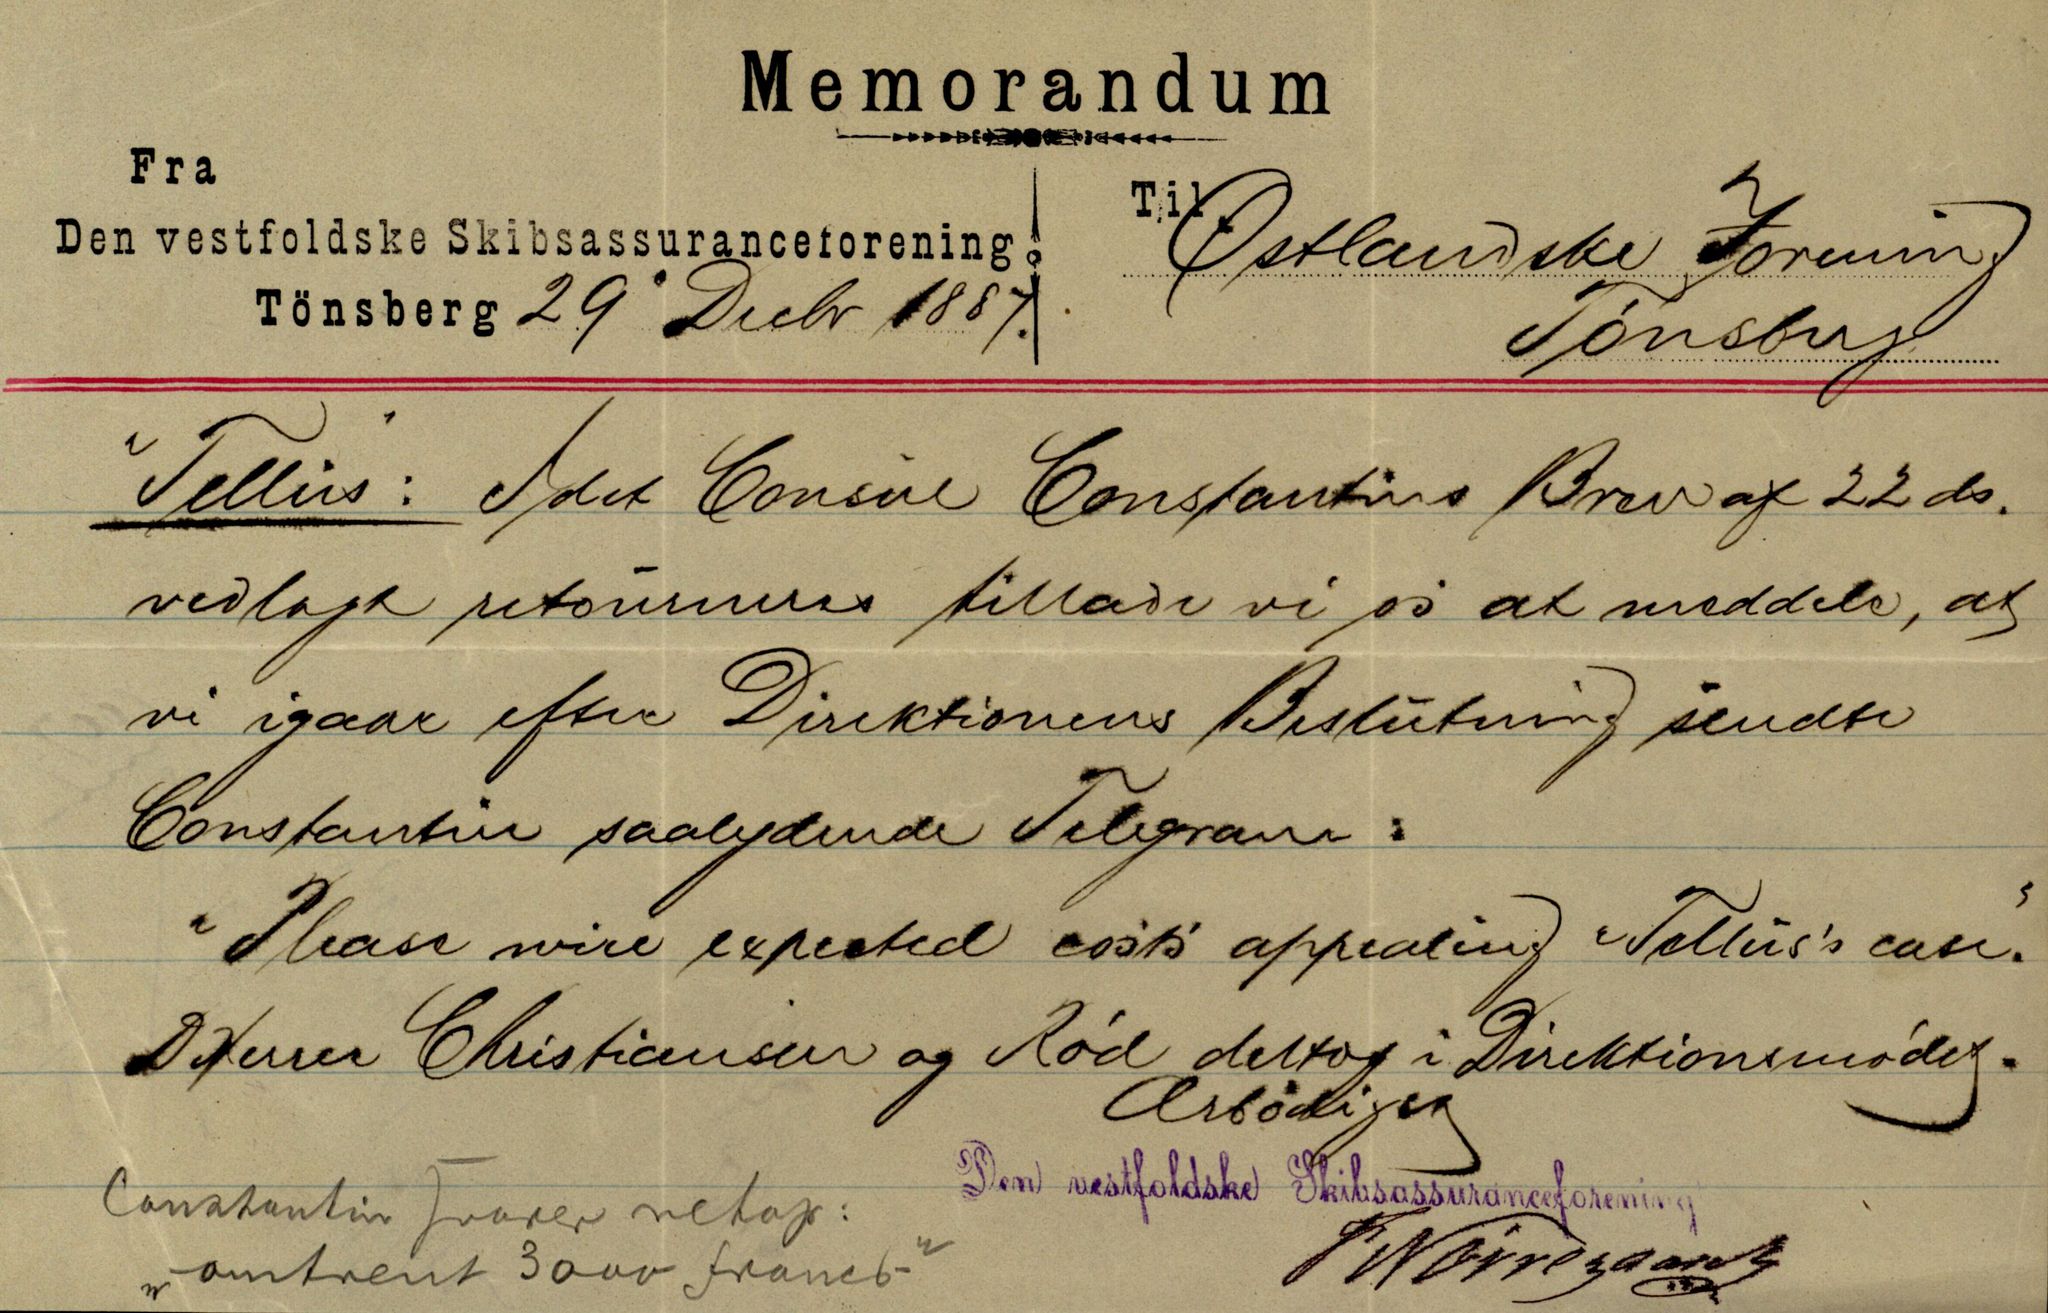 Memorandum
Fra
Den vestfoldske Skibsassuranceforening
Tönsberg 29' Decbr 1887.
Til Østlandske Forening
Tønsberg
"Tellus": Idet Consul Constantins Brev af 22 ds.
vedlagt retourneres tillade vi os at meddele, at
vi igaar efter Direktionens Beslutning sendte
Constantin saalydende Telegram:
"Please wire expected costs appealing "Tellus's case".
DHerrer Christiansen og Rød deltog i Direktionsmødet.
Ærbødigst
Den vestfoldske Skibsassuranceforening
Nørregaard
Constantin svarer netop:
"omtrent 3000 francs"